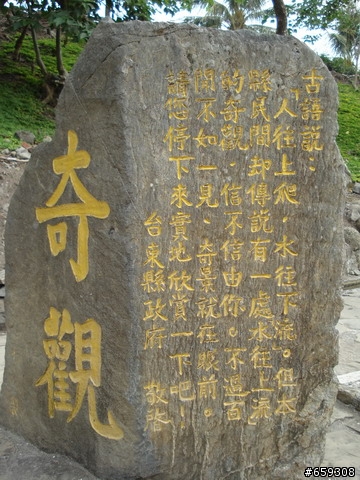 古語說：
「人往上爬，水往下流。但本
縣民間却傳說有一處水往上流
的奇觀，信不信由你。不過百
聞不如一見、奇景就在眼前。
請您停下來實地欣賞一下吧！
台東縣政府 敬啟
奇觀
#659308